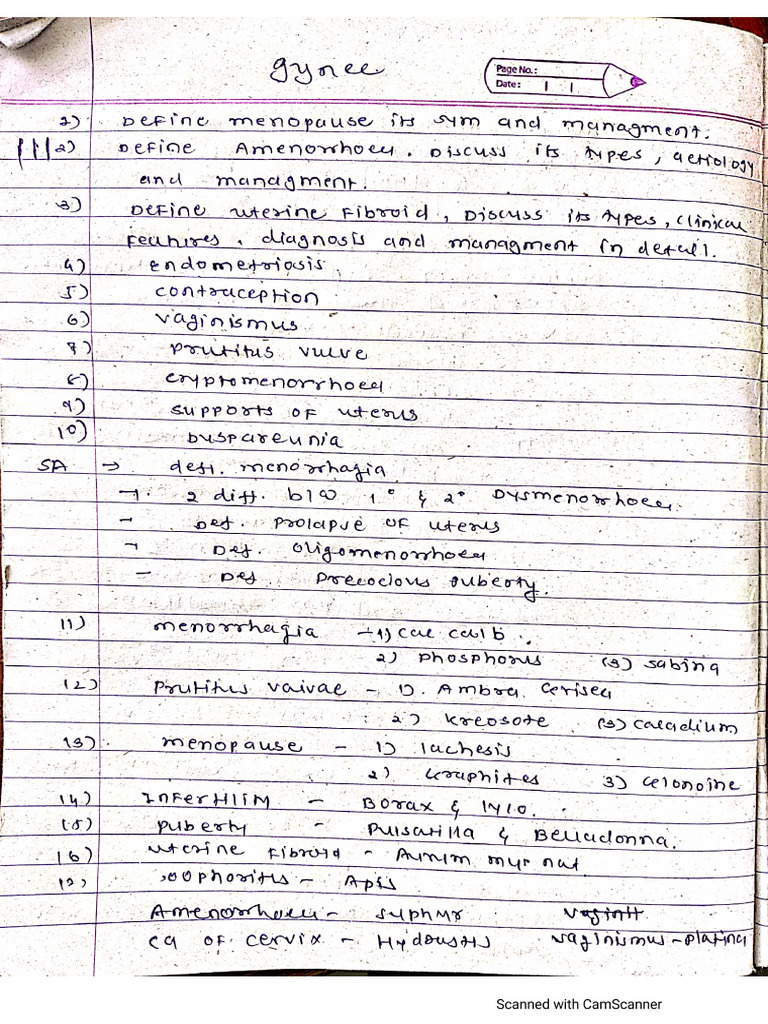 gynee
Page No.:
Date:
1) Define menopause its sym and managment.
2) Define Amenorrhoea. Discuss its types, aetiology
and managment.
3) Define uterine Fibroid, Discuss its types, clinical
features, diagnosis and managment in detail.
4) endometriosis
5) contraception
6) vaginismus
7) Prutitus vulve
8) cryptomenorrhoea
9) supports of uterus
10) Dyspareunia
SA → defi. menorrhagia
→ 2 diff. b/w 1° & 2° Dysmenorrhoea
- Def. Prolapse of uterus
→ Def. Oligomenorrhoea
- Def Precocious Puberty.
11) menorrhagia - 1) cal calb.
2) Phosphorus (3) Sabina
12) Prutitus vaivae - 1). Ambra Gerisea
2) Kreosote (3) caladium
13) menopause - 1) lachesis
2) Graphites 3) Glonoine
14) - Borax &
15) Puberty - Pulsatilla & Belladonna.
16) uterine Fibroid - Aurum mur nat
Oophoritis - Apis
Amenorrhoea - Suphur
ca of cervix - vaginismus - platina
Scanned with CamScanner